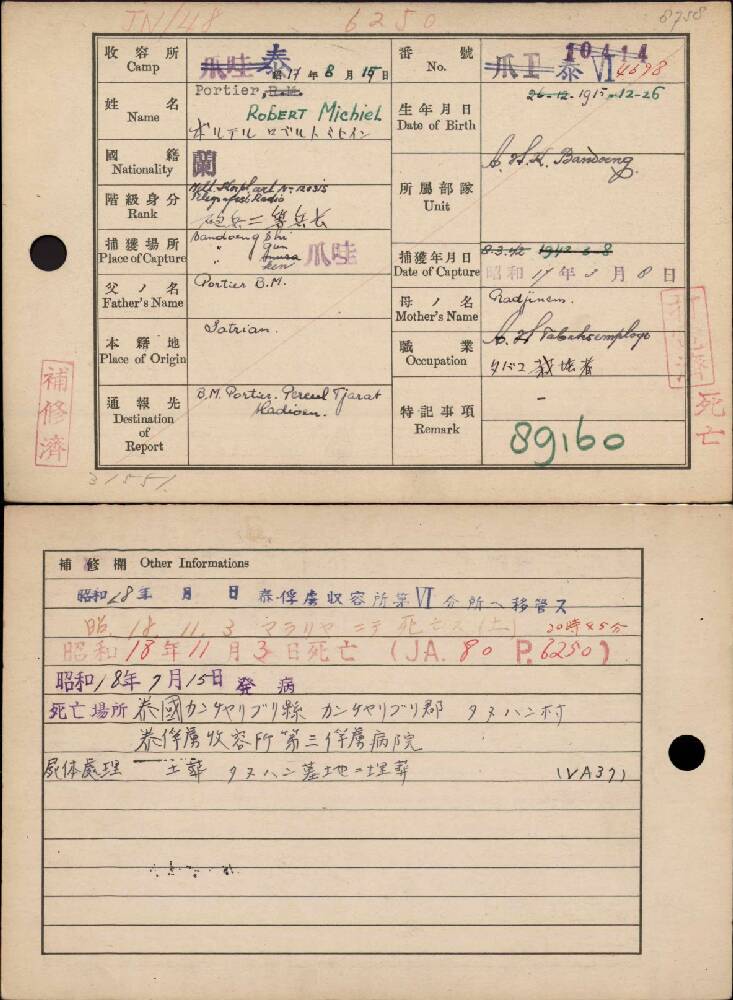 JN/148
6250
8758
收容所
Camp
爪哇 泰
昭17年8月15日
番號
No.
爪工 泰 VI
10414
4698
姓名
Name
Portier, R.M.
ROBERT Michiel
ポルテル ロベルト ミヒイン
生年月日
Date of Birth
26-12-1915-12-26
國籍
Nationality
蘭
所属部隊
Unit
Bandoeng
階級身分
Rank
Telegrafist Radio
砲兵二等兵長
捕獲場所
Place of Capture
Bandoeng Shi
" Gun
" 
Ken
爪哇
捕獲年月日
Date of Capture
8.3.42 1942-3-8
昭和17年3月8日
父ノ名
Father's Name
Portier B.M.
母ノ名
Mother's Name
Radjinem.
本籍地
Place of Origin
Satrian.
職業
Occupation
タバコ栽培者
通報先
Destination
of
Report
B.M. Portier. Perceel Tjarat
Madioen.
特記事項
Remark
-
89160
補修濟
死亡
31551
補修欄 Other Informations
昭和18年 月 日 泰俘虜収容所第VI分所ヘ移管ス
昭.18.11.3 マラリヤニテ死亡ス(土) 20時45分
昭和18年11月3日死亡 (JA.80 P.6250)
昭和18年7月15日発病
死亡場所 泰國カンチヤリブリ縣 カンチヤリブリ郡 タヌハン村
泰俘虜收容所第三俘虜病院
屍体處理 土葬 タヌハン墓地ニ埋葬 (VA37)